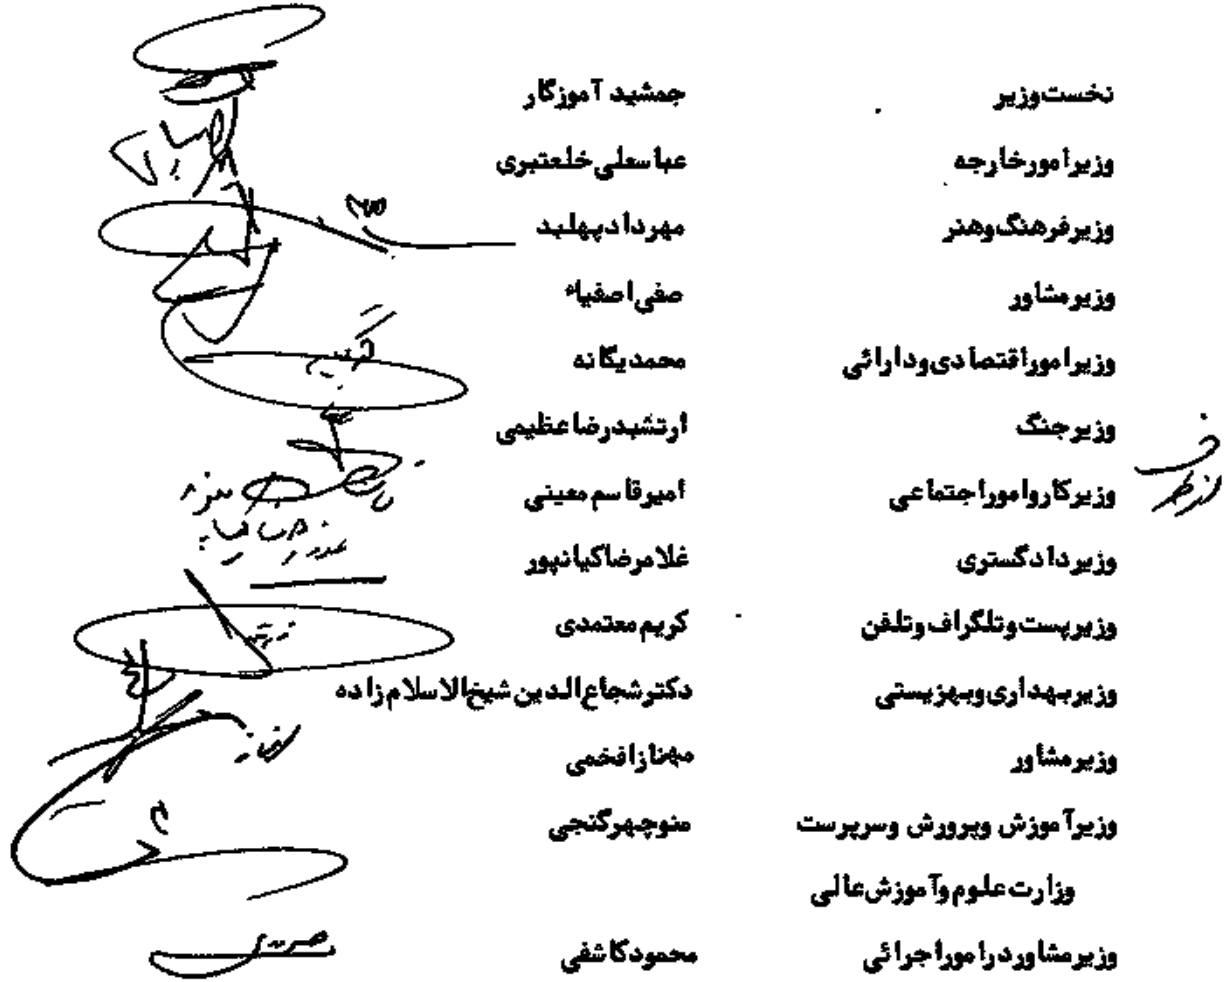 نخست‌وزیر جمشید آموزگار
وزیر امور خارجه عباسعلی خلعتبری
وزیر فرهنگ و هنر مهرداد پهلبد
وزیر مشاور صفی اصفیاء
وزیر امور اقتصادی و دارائی محمد یگانه
وزیر جنگ ارتشبد رضا عظیمی
از طرف
وزیر کار و امور اجتماعی امیر قاسم معینی
وزیر دادگستری غلامرضا کیانپور
وزیر پست و تلگراف و تلفن کریم معتمدی
وزیر بهداری و بهزیستی دکتر شجاع‌الدین شیخ‌الاسلام زاده
وزیر مشاور مهناز افخمی
وزیر آموزش وپرورش وسرپرست منوچهر گنجی
وزارت علوم و آموزش عالی
وزیر مشاور در امور اجرائی محمود کاشفی